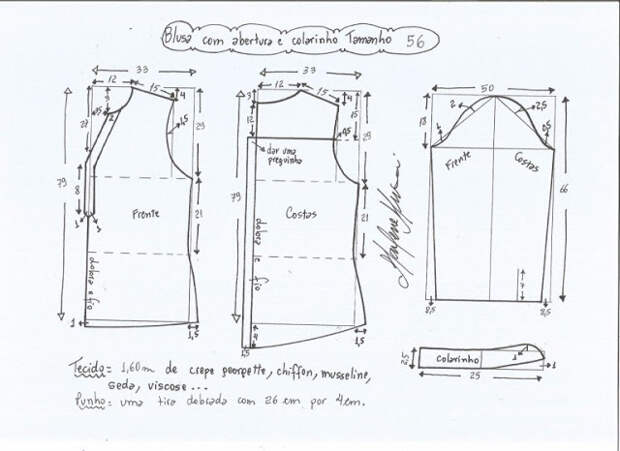 Blusa com abertura e colarinho Tamanho 56
33
12
15
4
3
1,5
2
27
1,5
25
79
8
1
1
Frente
21
dobra e fio
1
1,5
33
12
15
3
4
12
15
0,5
25
dar uma
preguinha
79
Costas
21
dobra e fio
4
1,5
1,5
50
2
2,5
18
1
0,5
Frente
Costas
66
7
8,5
8,5
Marlene Mukai
2,5
colarinho
1
1
1
25
Tecido = 1,60m de crepe georgette, chiffon, musseline,
seda, viscose ...
Punho = uma tira dobrada com 26 cm por 4 cm.